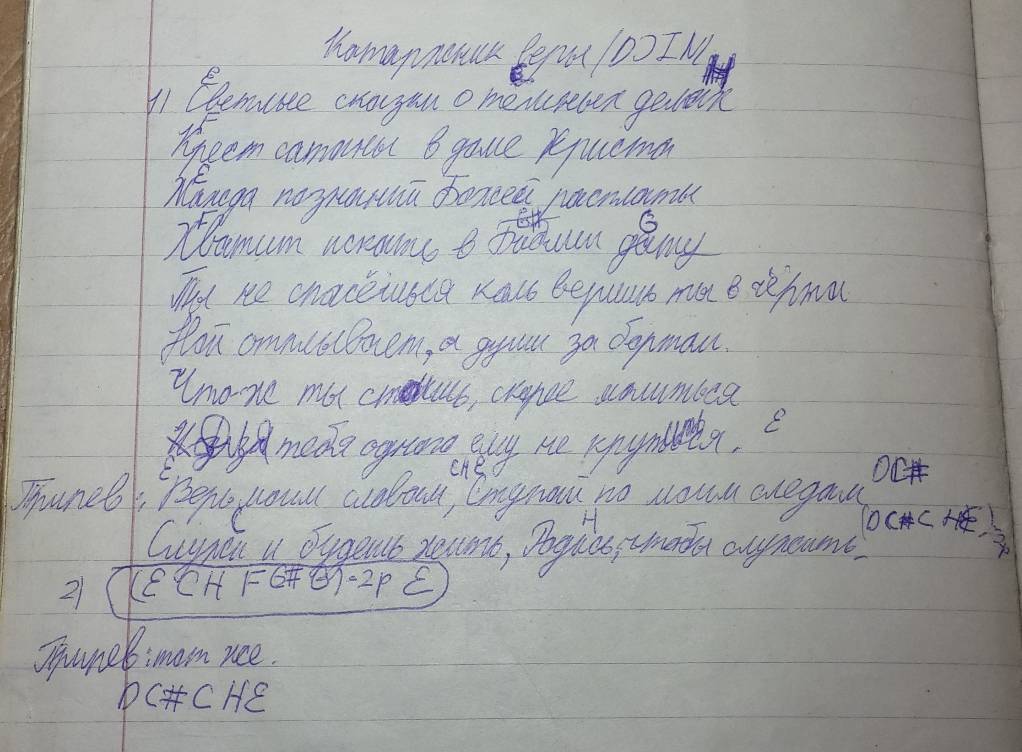 Катаржник веры (DJIN)
E E H
1) Светлые сказки о темных делах
F
Крест сатаны в доме Христа
E
Жажда познаний Божей расплаты
F G# G
Хватит искать в Библии дату
Ты не спасёшься коль веришь ты в чёрта
Ной отплывает, а души за бортам.
Что-ж ты стоишь, скорее молиться
Для тебя одного ему не крутиться. E
E CHE DC#
Припев: Верь моим словам, Ступай по моим следам
C H (DC#CHE)-2р
Служи и будешь жить, Родись, чтобы служить.
2) (E C H F G# G)-2р E
Припев: тот же.
DC#CHE